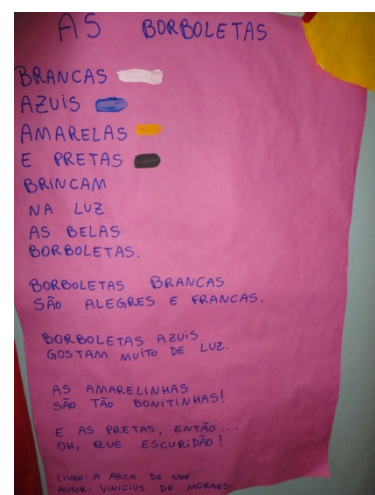 AS BORBOLETAS
BRANCAS
AZUIS
AMARELAS
E PRETAS
BRINCAM
NA LUZ
AS BELAS
BORBOLETAS.
BORBOLETAS BRANCAS
SÃO ALEGRES E FRANCAS.
BORBOLETAS AZUIS
GOSTAM MUITO DE LUZ.
AS AMARELINHAS
SÃO TÃO BONITINHAS!
E AS PRETAS, ENTÃO...
OH, QUE ESCURIDÃO!
LIVRO: A ARCA DE NOÉ
AUTOR: VINICIUS DE MORAES